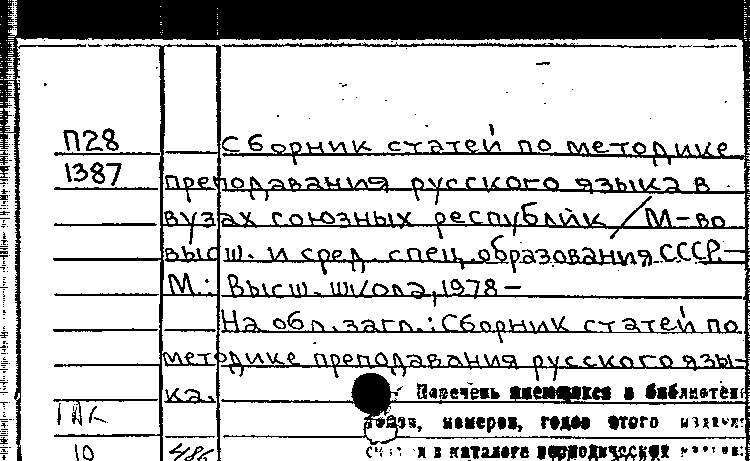 П28 Сборник статей по методике
1387 преподавания русского языка в
вузах союзных республик / М-во
высш. и сред. спец. образования СССР.-
М.: Высш. школа, 1978-
На обл. загл.: Сборник статей по
методике преподавания русского язы-
ка. Перечень имеющихся в библиотек
номеров, годов этого издани
в каталоге периодических
10 486